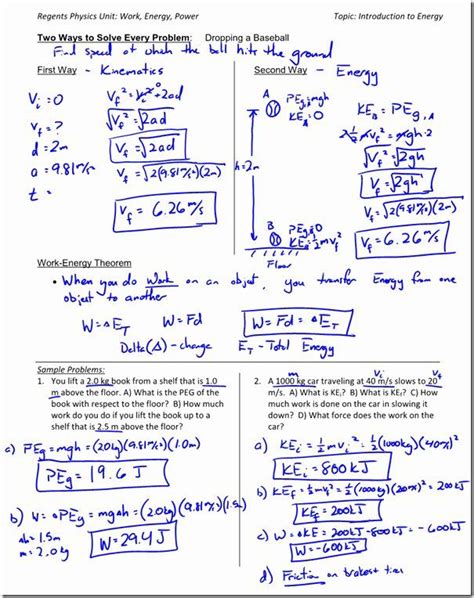 Regents Physics Unit: Work, Energy, Power
Topic: Introduction to Energy
Two Ways to Solve Every Problem: Dropping a Baseball
Find speed at which the ball hits the ground
First Way - Kinematics
Vi = 0
Vf = ?
d = 2m
a = 9.81 m/s²
t =
Vf² = Vi² + 2ad
√Vf² = √2ad
Vf = √2ad
Vf = √2(9.81 m/s²)(2m)
Vf = 6.26 m/s
Second Way - Energy
A
PEg = mgh
KEA = 0
h = 2m
B
PEg = 0
KEB = ½mvf²
Floor
KEB = PEg,A
2·½mvf² = mgh·2
√Vf² = √2gh
Vf = √2gh
Vf = √2(9.81 m/s²)(2m)
Vf = 6.26 m/s
Work-Energy Theorem
• When you do work on an object, you transfer Energy from one
object to another
W = ΔET
W = Fd
W = Fd = ΔET
Delta (Δ) - change
ET - Total Energy
Sample Problems:
1. You lift a 2.0 kg book from a shelf that is 1.0
m above the floor. A) What is the PEG of the
book with respect to the floor? B) How much
work do you do if you lift the book up to a
shelf that is 2.5 m above the floor?
a) PEg = mgh = (2.0kg)(9.81 m/s²)(1.0m)
PEg = 19.6 J
b) W = ΔPEg = mgΔh = (2.0kg)(9.81 m/s²)(1.5m)
Δh = 1.5m
m = 2.0kg
W = 29.4 J
m Vi Vf
2. A 1000 kg car traveling at 40 m/s slows to 20
m/s. A) What is KEi? B) What is KEf? C) How
much work is done on the car in slowing it
down? D) What force does the work on the
car?
a) KEi = ½mvi² = ½(1000kg)(40 m/s)²
KEi = 800 kJ
b) KEf = ½mvf² = ½(1000kg)(20 m/s)² = 200kJ
KEf = 200 kJ
c) W = ΔKE = 200kJ - 800kJ = -600kJ
W = -600kJ
d) Friction on brakes + tires